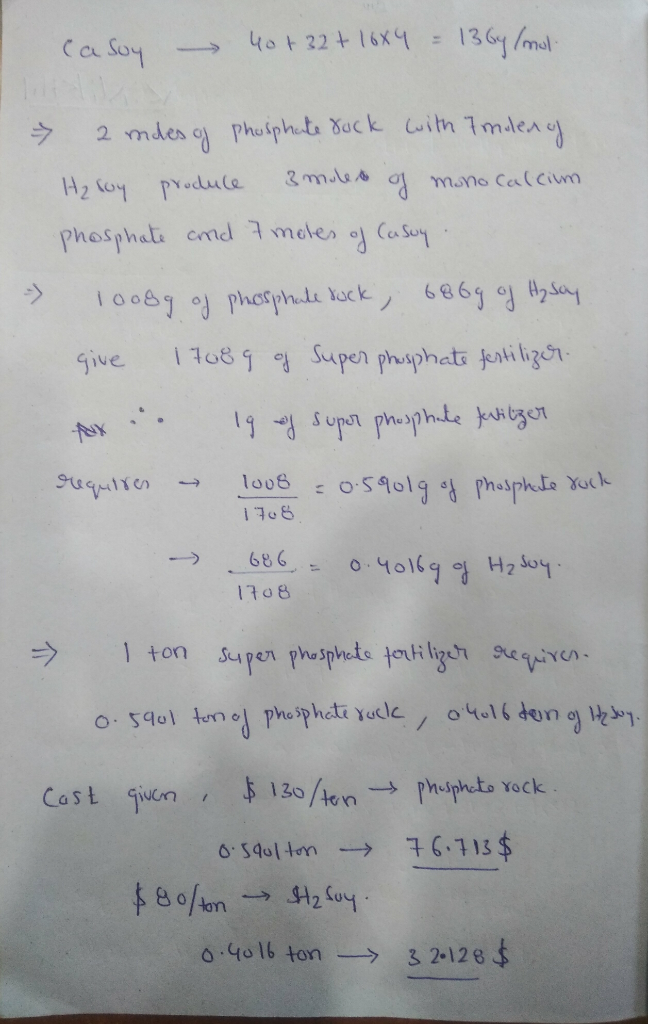 CaSO4 → 40 + 32 + 16×4 = 136g/mol.
⇒ 2 moles of phosphate rock with 7 moles of
H2SO4 produce 3 moles of mono calcium
phosphate and 7 moles of CaSO4.
⇒ 1008g of phosphate rock, 686g of H2SO4
give 1708 g of Super phosphate fertilizer.
∴ 1g of super phosphate fertilizer
requires → 1008/1708 = 0.5901g of phosphate rock
→ 686/1708 = 0.4016g of H2SO4.
⇒ 1 ton super phosphate fertilizer requires.
0.5901 ton of phosphate rock, 0.4016 ton of H2SO4.
Cost given, $130/ton → phosphate rock.
0.5901 ton → 76.713$
$80/ton → H2SO4.
0.4016 ton → 32.128$